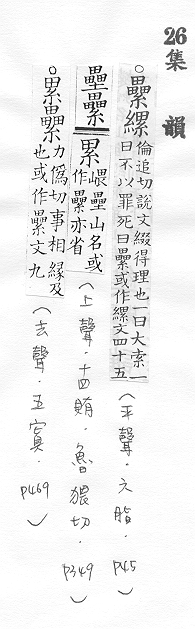 26集韻
○纍縲 倫追切說文綴得理也一曰大索一曰不以罪死曰纍或作縲文四十五 (平聲.六脂.P45)
壘纍 累 㟪壘山名或作纍亦省 (上聲.十四賄.魯猥切.P349)
○累纍 力偽切事相緣及也或作纍文九 (去聲.五寘.P469)